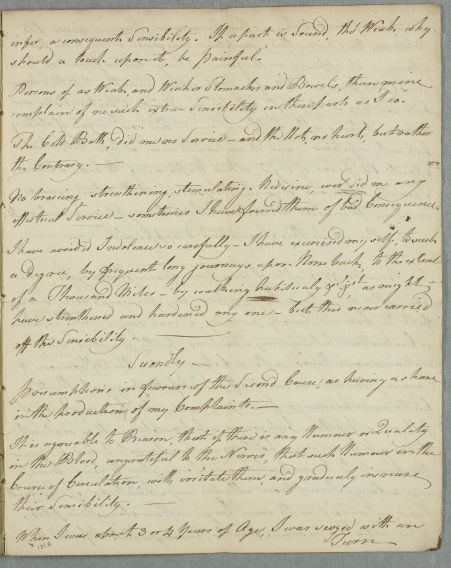 infer, a consequent Sensibility. If a part is Sound, tho' Weak, why
should a touch upon it, be painful.
Persons of as Weak, and Weaker Stomachs and Bowels, than mine
complain of no such extra Sensibility in these parts as I do.
The Cold Bath, did me no Service – and the Hot, no hurt, but rather
the Contrary. —
No bracing strenthening, stimulating Medicine, ever did me any
effectual Service – sometimes I have found them of bad Consequence.
I have avoided Indolence so carefully – I have exercised my self, to such
a degree, by frequent long journeys upon Horse back, to the extent
of a Thousand Miles – by walking habitualy &c. &c. as might
have strenthened and hardened any one – but this never carried
off the Sensibility. —
Secondly —
Presumptions in favours of the Second Cause, as having a share
in the production of my Complaints. —
It is agreeable to Reason, that if there is any Humour or Quality
in the Blood, ungrateful to the Nerves, that such Humour in the
Course of Circulation, will irritate them, and gradualy increase
their Sensibility. —
When I was about 3 or 4 Years of Age, I was seized with an